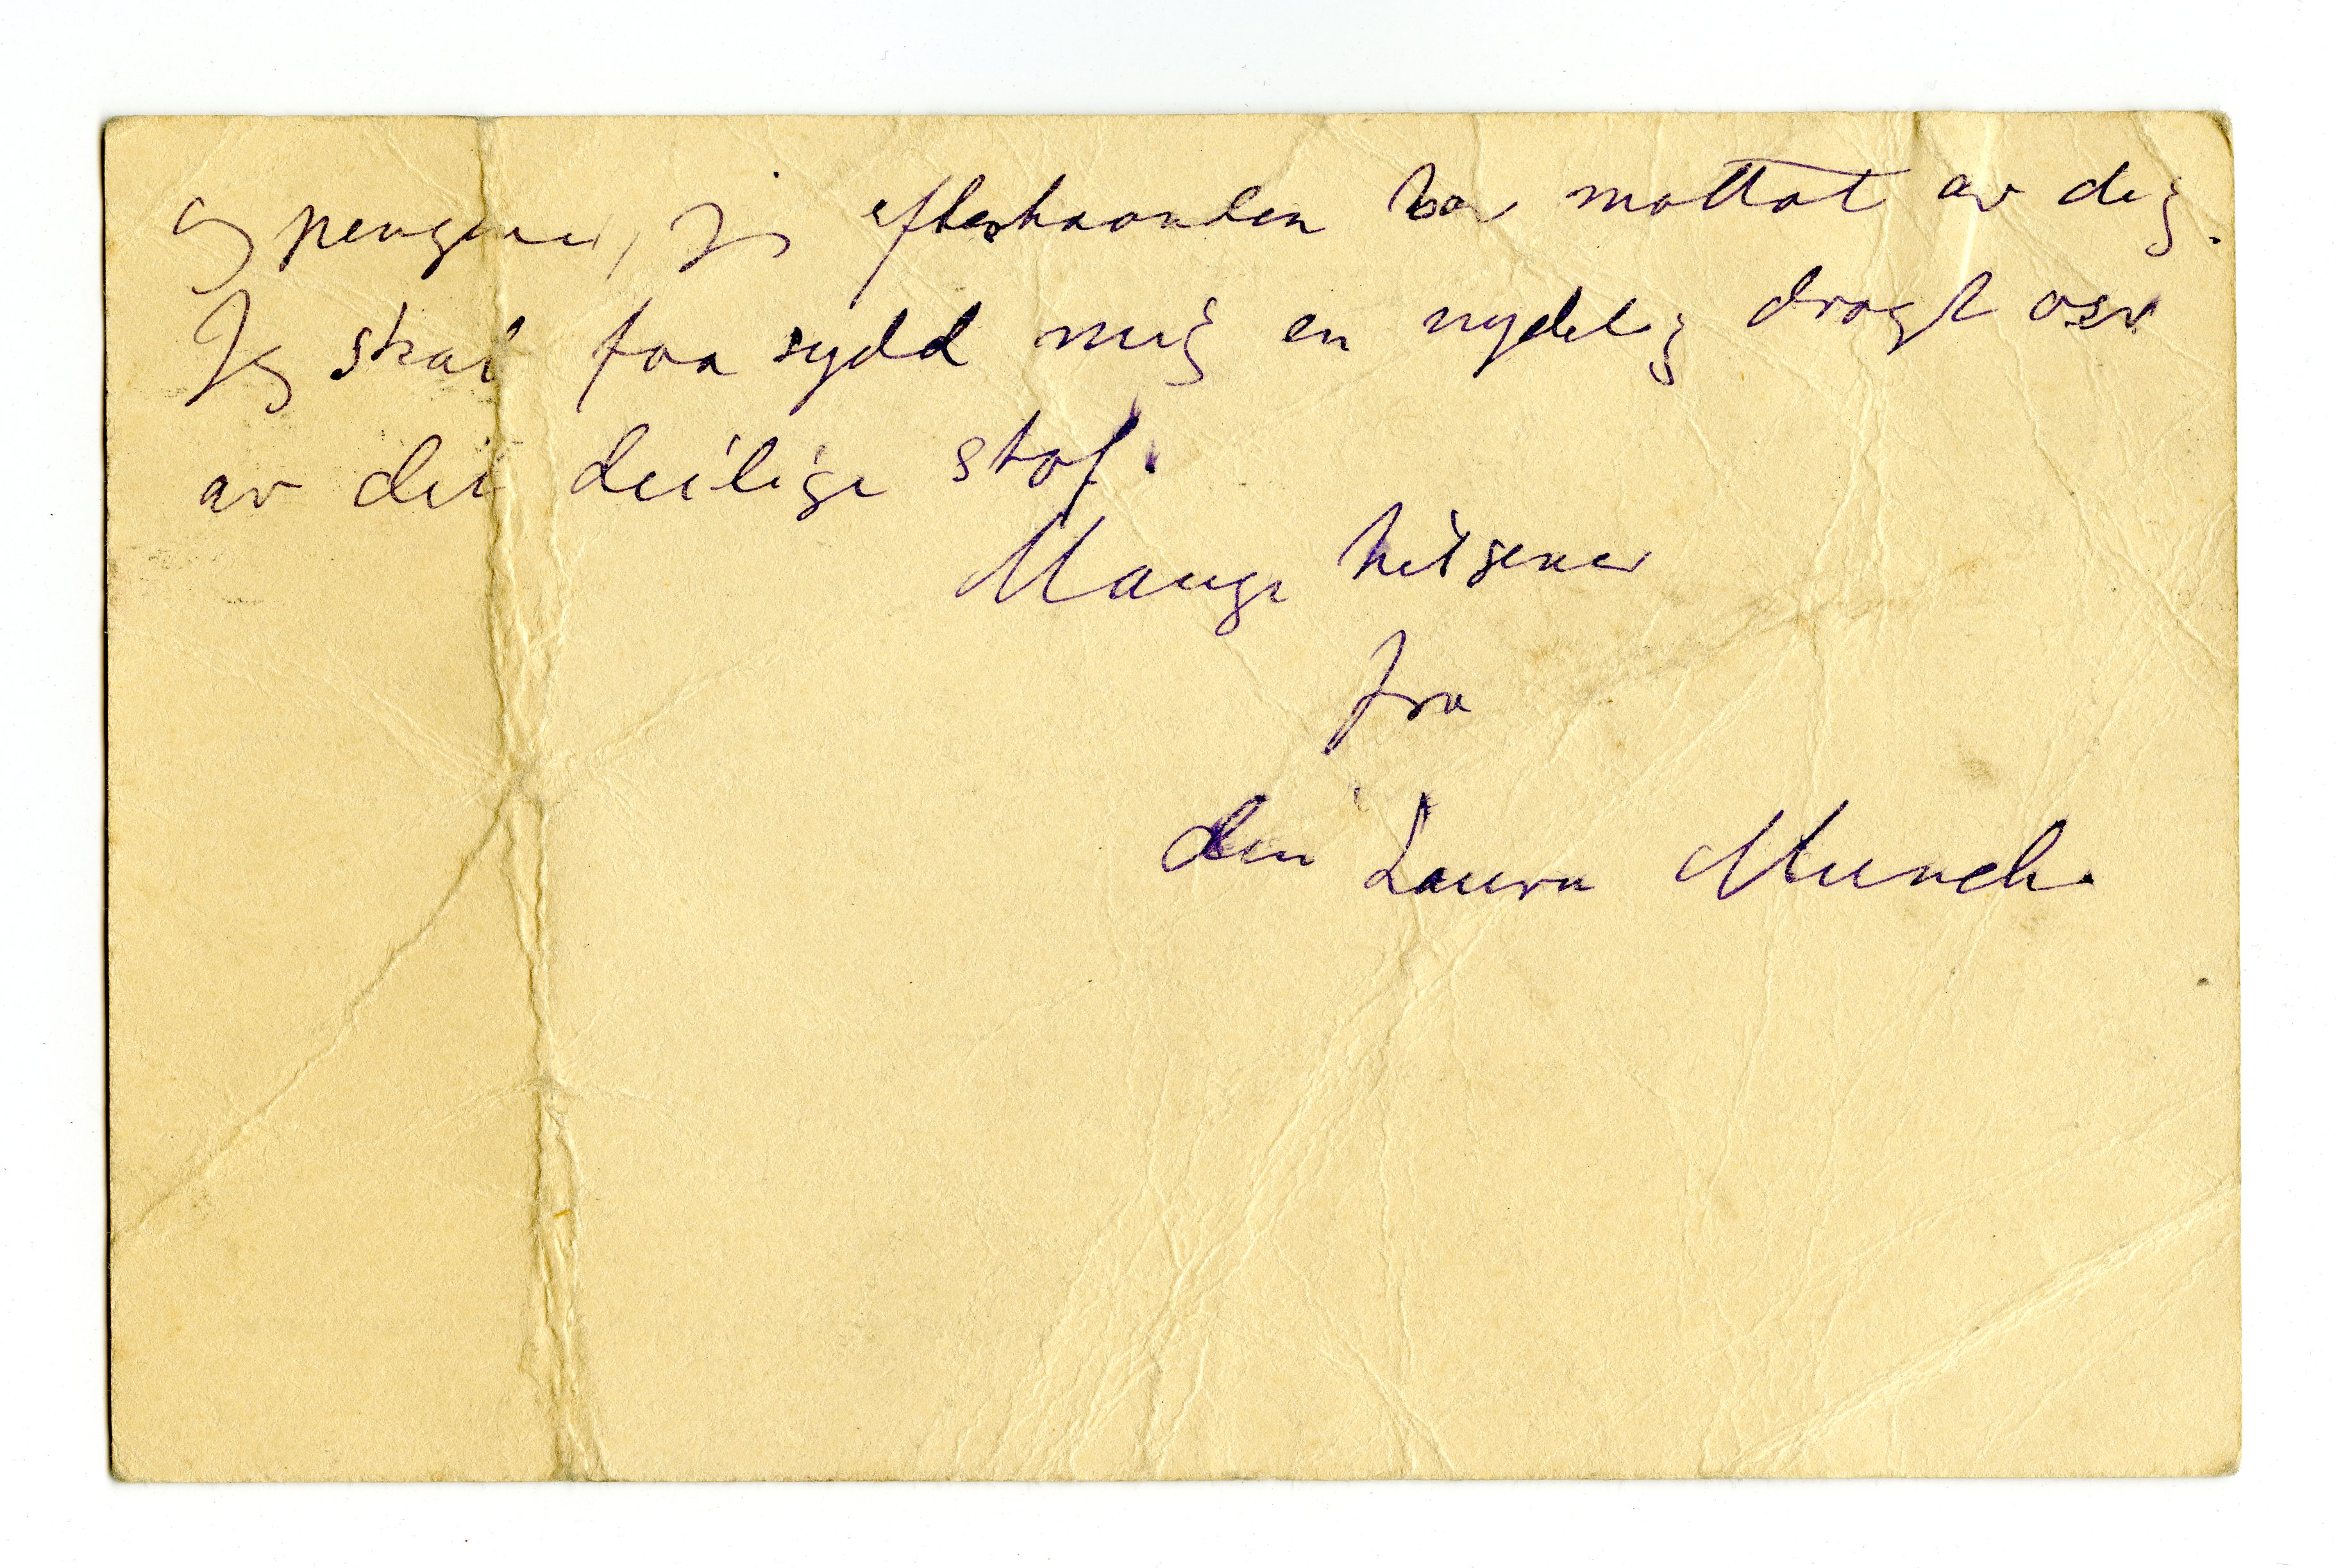 og pengene, jeg efterhaanden har mottat av dig.
Jeg skal faa sydd mig en nydelig dragt osv
av det deilige stof.
Mange hilsener
fra
din Laura Munch.